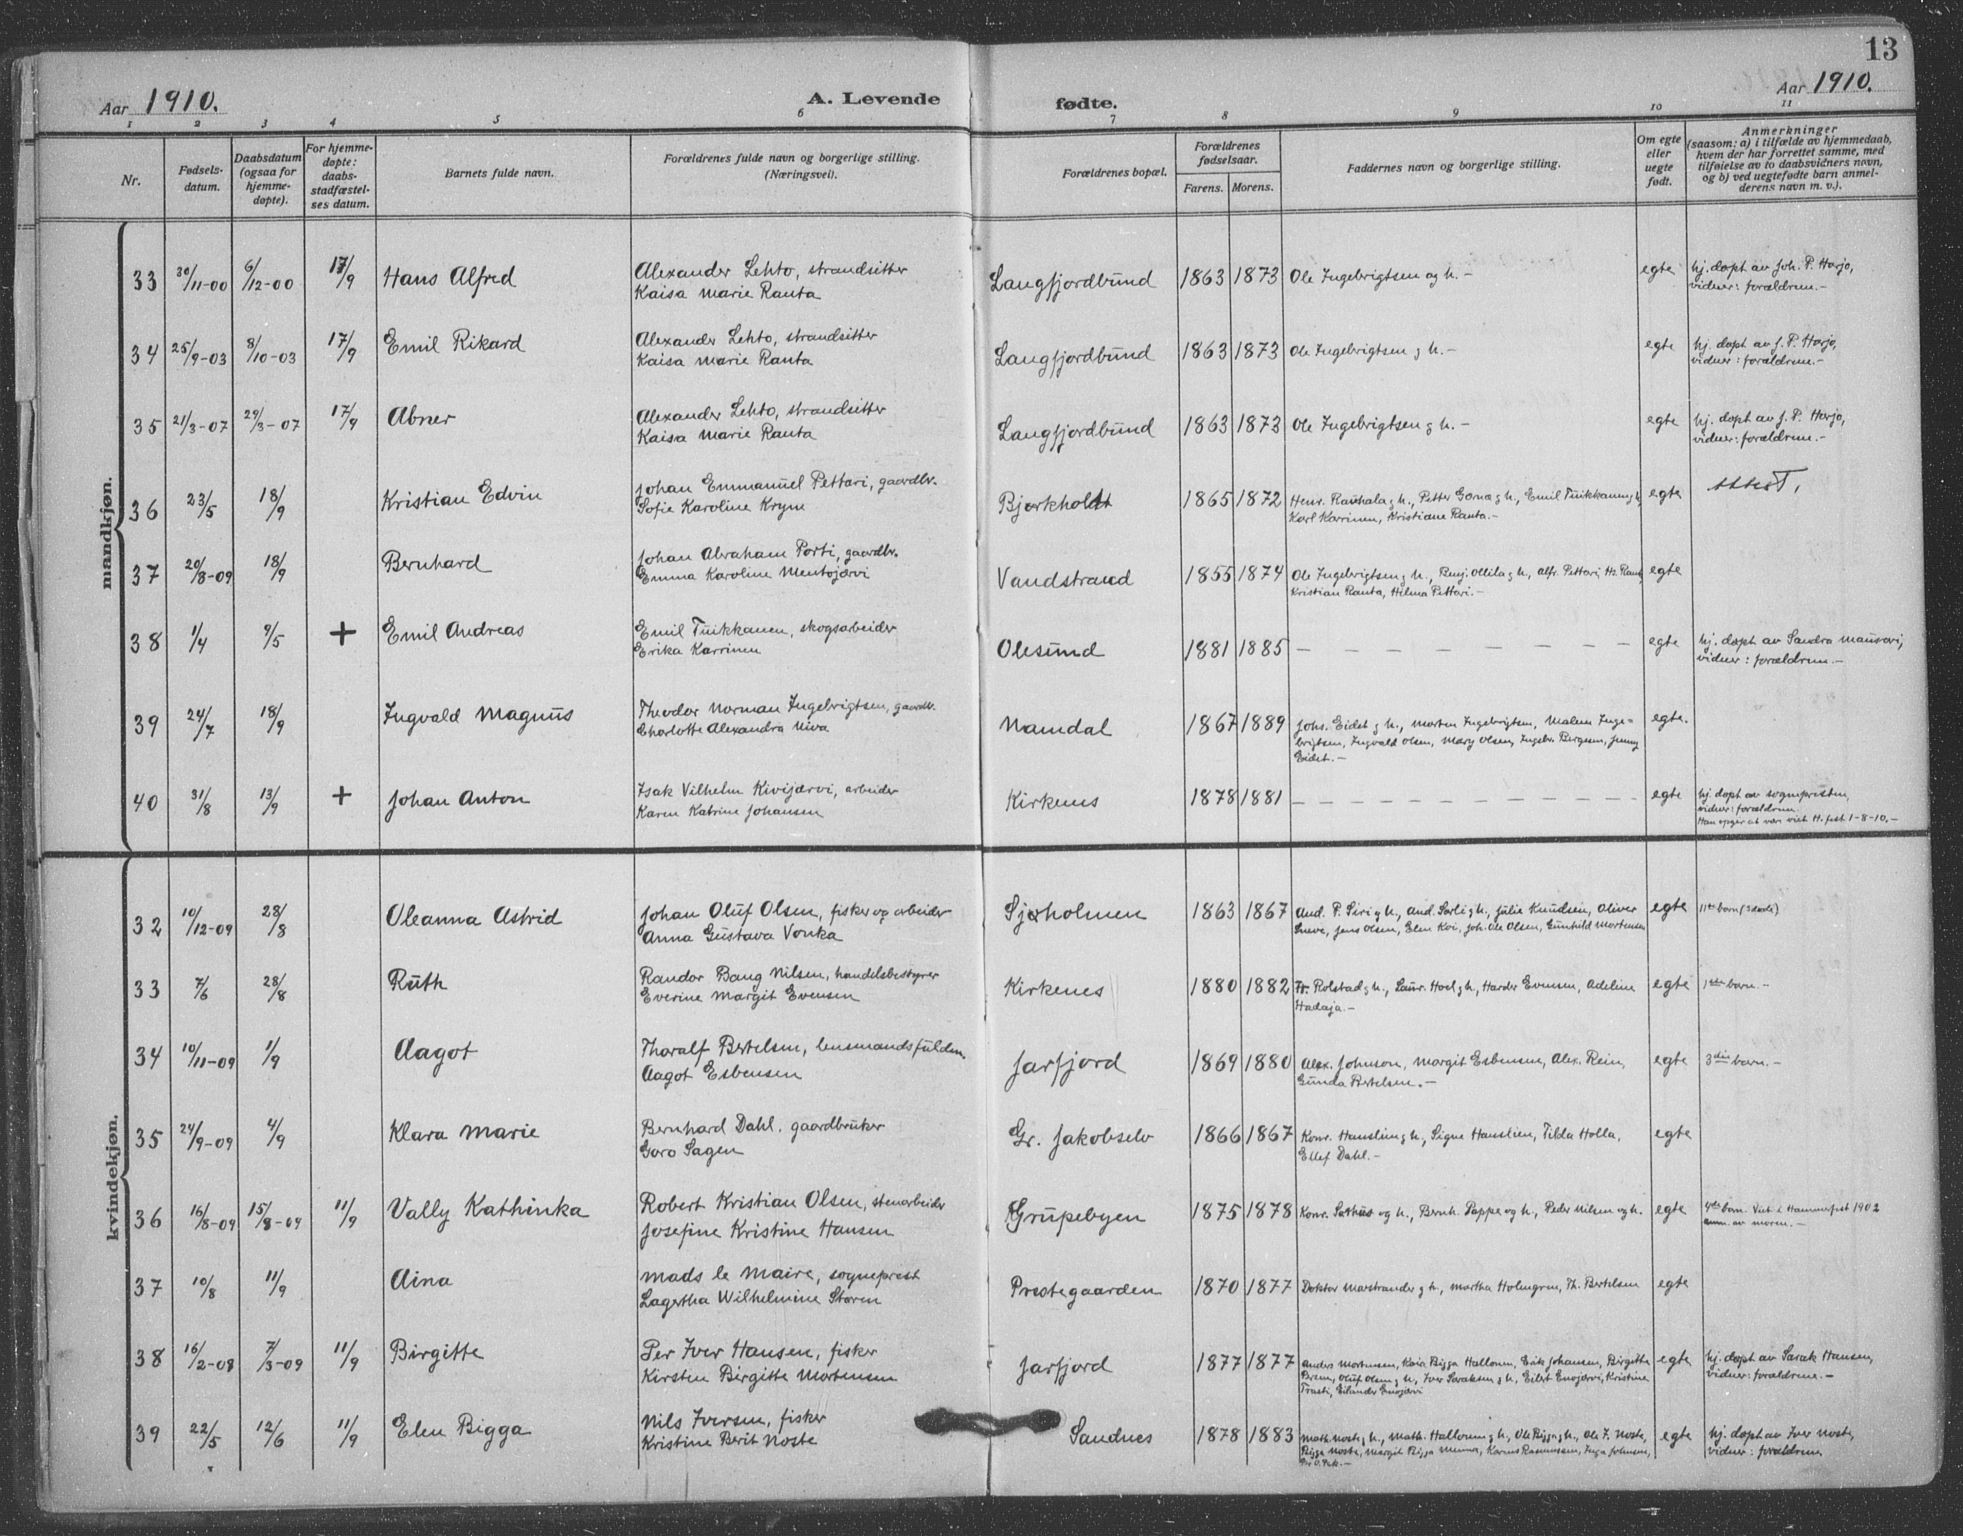 13
Aar 1910.
A. Levende fødte.
Aar 1910.
1 2 3 4 5 6 7 8 9 10 11
Nr.
Fødsels-
datum.
Daabsdatum
(ogsaa for
hjemme-
døpte).
For hjemme-
døpte:
daabs-
stadfæstel-
ses datum.
Barnets fulde navn.
Forældrenes fulde navn og borgerlige stilling.
(Næringsvei).
Forældrenes bopæl.
Forældrenes
fødselsaar.
Farens. Morens.
Faddernes navn og borgerlige stilling.
Om egte
eller
uegte
født.
Anmerkninger
(saasom: a) i tilfælde av hjemmedaab,
hvem der har forrettet samme, med
tilføielse av to daabsvidners navn,
og b) ved uegtefødte barn anmel-
derens navn m. v.).
mandkjøn.
33 30/11-00 6/12-00 17/9 Hans Alfred Alexander Lehto, strandsitter Langfjordbund 1863 1873 Ole Ingebrigtsen og h. - egte hj. døpt av Joh. P. Harjo,
Kaisa Marie Ranta vidner: forældrene.-
34 25/9-03 8/10-03 17/9 Emil Rikard Alexander Lehto, strandsitter Langfjordbund 1863 1873 Ole Ingebrigtsen og h. - egte hj. døpt av J. P. Harjo,
Kaisa Marie Ranta vidner: forældrene.-
35 21/3-07 29/3-07 17/9 Abner Alexander Lehto, strandsitter Langfjordbund 1863 1873 Ole Ingebrigtsen og h. - egte hj. døpt av J. P. Harjo,
Kaisa Marie Ranta vidner: forældrene.-
36 23/5 18/9 Kristian Edvin Johan Emmanuel Pettari, gaardbr. Bjørkholdt 1865 1872 Henr. Rauhala og h., Petter og h., Emil Tuikkanen og h egte
Sofie Karoline Kryn Karl Karrinen, Kristiane Ranta.-
37 20/8-09 18/9 Bernhard Johan Abraham Porti, gaardbr. Vandstrand 1855 1874 Ole Ingebrigtsen og h., Benj. Ollila og h., Alfr. Pettari, egte
Emma Karoline Mentojærvi Kristian Ranta, Hilma Pettari.-
38 1/4 9/5 + Emil Andreas Emil Tuikkanen, skogsarbeider Olesund 1881 1885 - - - egte hj. døpt av Sandra
Erika Karrinen vidner: forældrene.-
39 24/7 18/9 Ingvald Magnus Theodor Norman Ingebrigtsen, gaardbr. Namdal 1867 1889 Johs. Eidet og h., Morten Ingebrigtsen, Malene Inge= egte.
Charlotte Alexandra Niva brigtsen, Ingvald Olsen, Mary Olsen, Ingebr. Bergesen, Jenny
Eidet.-
40 31/8 13/9 + Johan Anton Isak Vilhelm Kivijærvi, arbeider Kirkenes 1878 1881 - - - egte hj. døpt av sognepresten,
Karen Katrine Johansen vidner: forældrene.
Han opger at være viet H.fest 1-8-10.-
kvindekjøn.
32 10/12-09 28/8 Oleanna Astrid Johan Oluf Olsen, fisker og arbeider Sjøholmen 1863 1867 And. P. Siri og h., And. Sarli og h., Julie Knudsen, Oliver egte 11te barn
Anna Gustava Vonka Sneve, Jens Olsen, Elen Kvi, Joh. Ole Olsen, Gunhild Mortensen
33 7/6 28/8 Ruth Randor Bang Nilsen, handelsbestyrer Kirkenes 1880 1882 Fr. Rolstad og h., Laur. Hoel og h., Harder Evensen, Adeline egte 1ste barn.-
Everine Margit Evensen Hadaja.-
34 10/11-09 1/9 Aagot Tharalf Bertelsen, lensmandsfuldm. Jarfjord 1869 1880 Alex. Johnson, Margit Esbensen, Alex. Rein, egte 3die barn.-
Aagot Esbensen Gunda Bertelsen.-
35 24/9-09 4/9 Klara Marie Bernhard Dahl, gaardbruker Gr. Jakobselv 1866 1867 Konr. Hanslien og h., Signe Hanslien, Tilda Holla, egte
Goro Sagen Ellef Dahl.-
36 16/8-09 15/8-09 11/9 Vally Kathinka Robert Kristian Olsen, stenarbeider Grubebyen 1875 1878 Konr. og h., Bernh. Pappe og h., Peder Nilsen og h. egte 4de barn. Viet i Hammerfest 1902
Josefine Kristine Hansen anm. av moren.-
37 10/8 11/9 Aina Mads le Maire, sogneprest Prestegaarden 1870 1877 Doktor Marstrander og h., Martha Holmgren, Th. Bertelsen egte
Lagertha Wilhelmine Støren
38 16/2-08 7/3-09 11/9 Birgitte Per Iver Hansen, fisker Jarfjord 1877 1877 Anders Mortensen, Bigga Hallonen, Erik Johansen, Birgitte egte hj. døpt av Sarak Hansen,
Kirsten Birgitte Mortensen Oluf Olsen og h., Iver Saraksen og h., Eilert Enojærvi, Kristine vidner: forældrene.-
Trasti, Eilander Enojærvi
39 22/5 12/6 11/9 Elen Bigga Nils Iversen, fisker Sandnes 1878 1883 Math. Noste og h., Math. Hallonen og h., Ole Bigga og h., Ole J. Noste, egte hj. døpt av Iver Noste,
Kristine Berit Noste Bigga Noste, Margit Bigga Karens Rasmussen, Inga Johnsen, vidner: forældrene